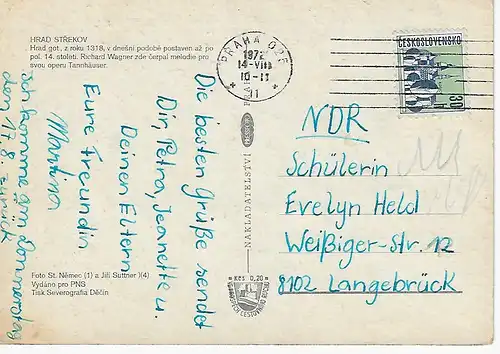 HRAD STŘEKOV
Hrad got. z roku 1318, v dnešní podobě postaven až po
pol. 14. století. Richard Wagner zde čerpal melodie pro
svou operu Tannhäuser.
Die besten Grüße sendet
Dir, Petra, Jeanette u.
Deinen Eltern
Eure Freundin
Martina
Ich komme am Donnerstag
den 17.8. zurück
Foto St. Němec (1) a Jiří Suttner (4)
Vydáno pro PNS
Tisk Severografia Děčín
NAKLADATELSTVÍ
Kčs 0,20
PRAHA
1972
14-VIII
10-11
11
ČESKOSLOVENSKO
30
NDR
Schülerin
Evelyn Held
Weißiger-Str. 12
8102 Langebrück